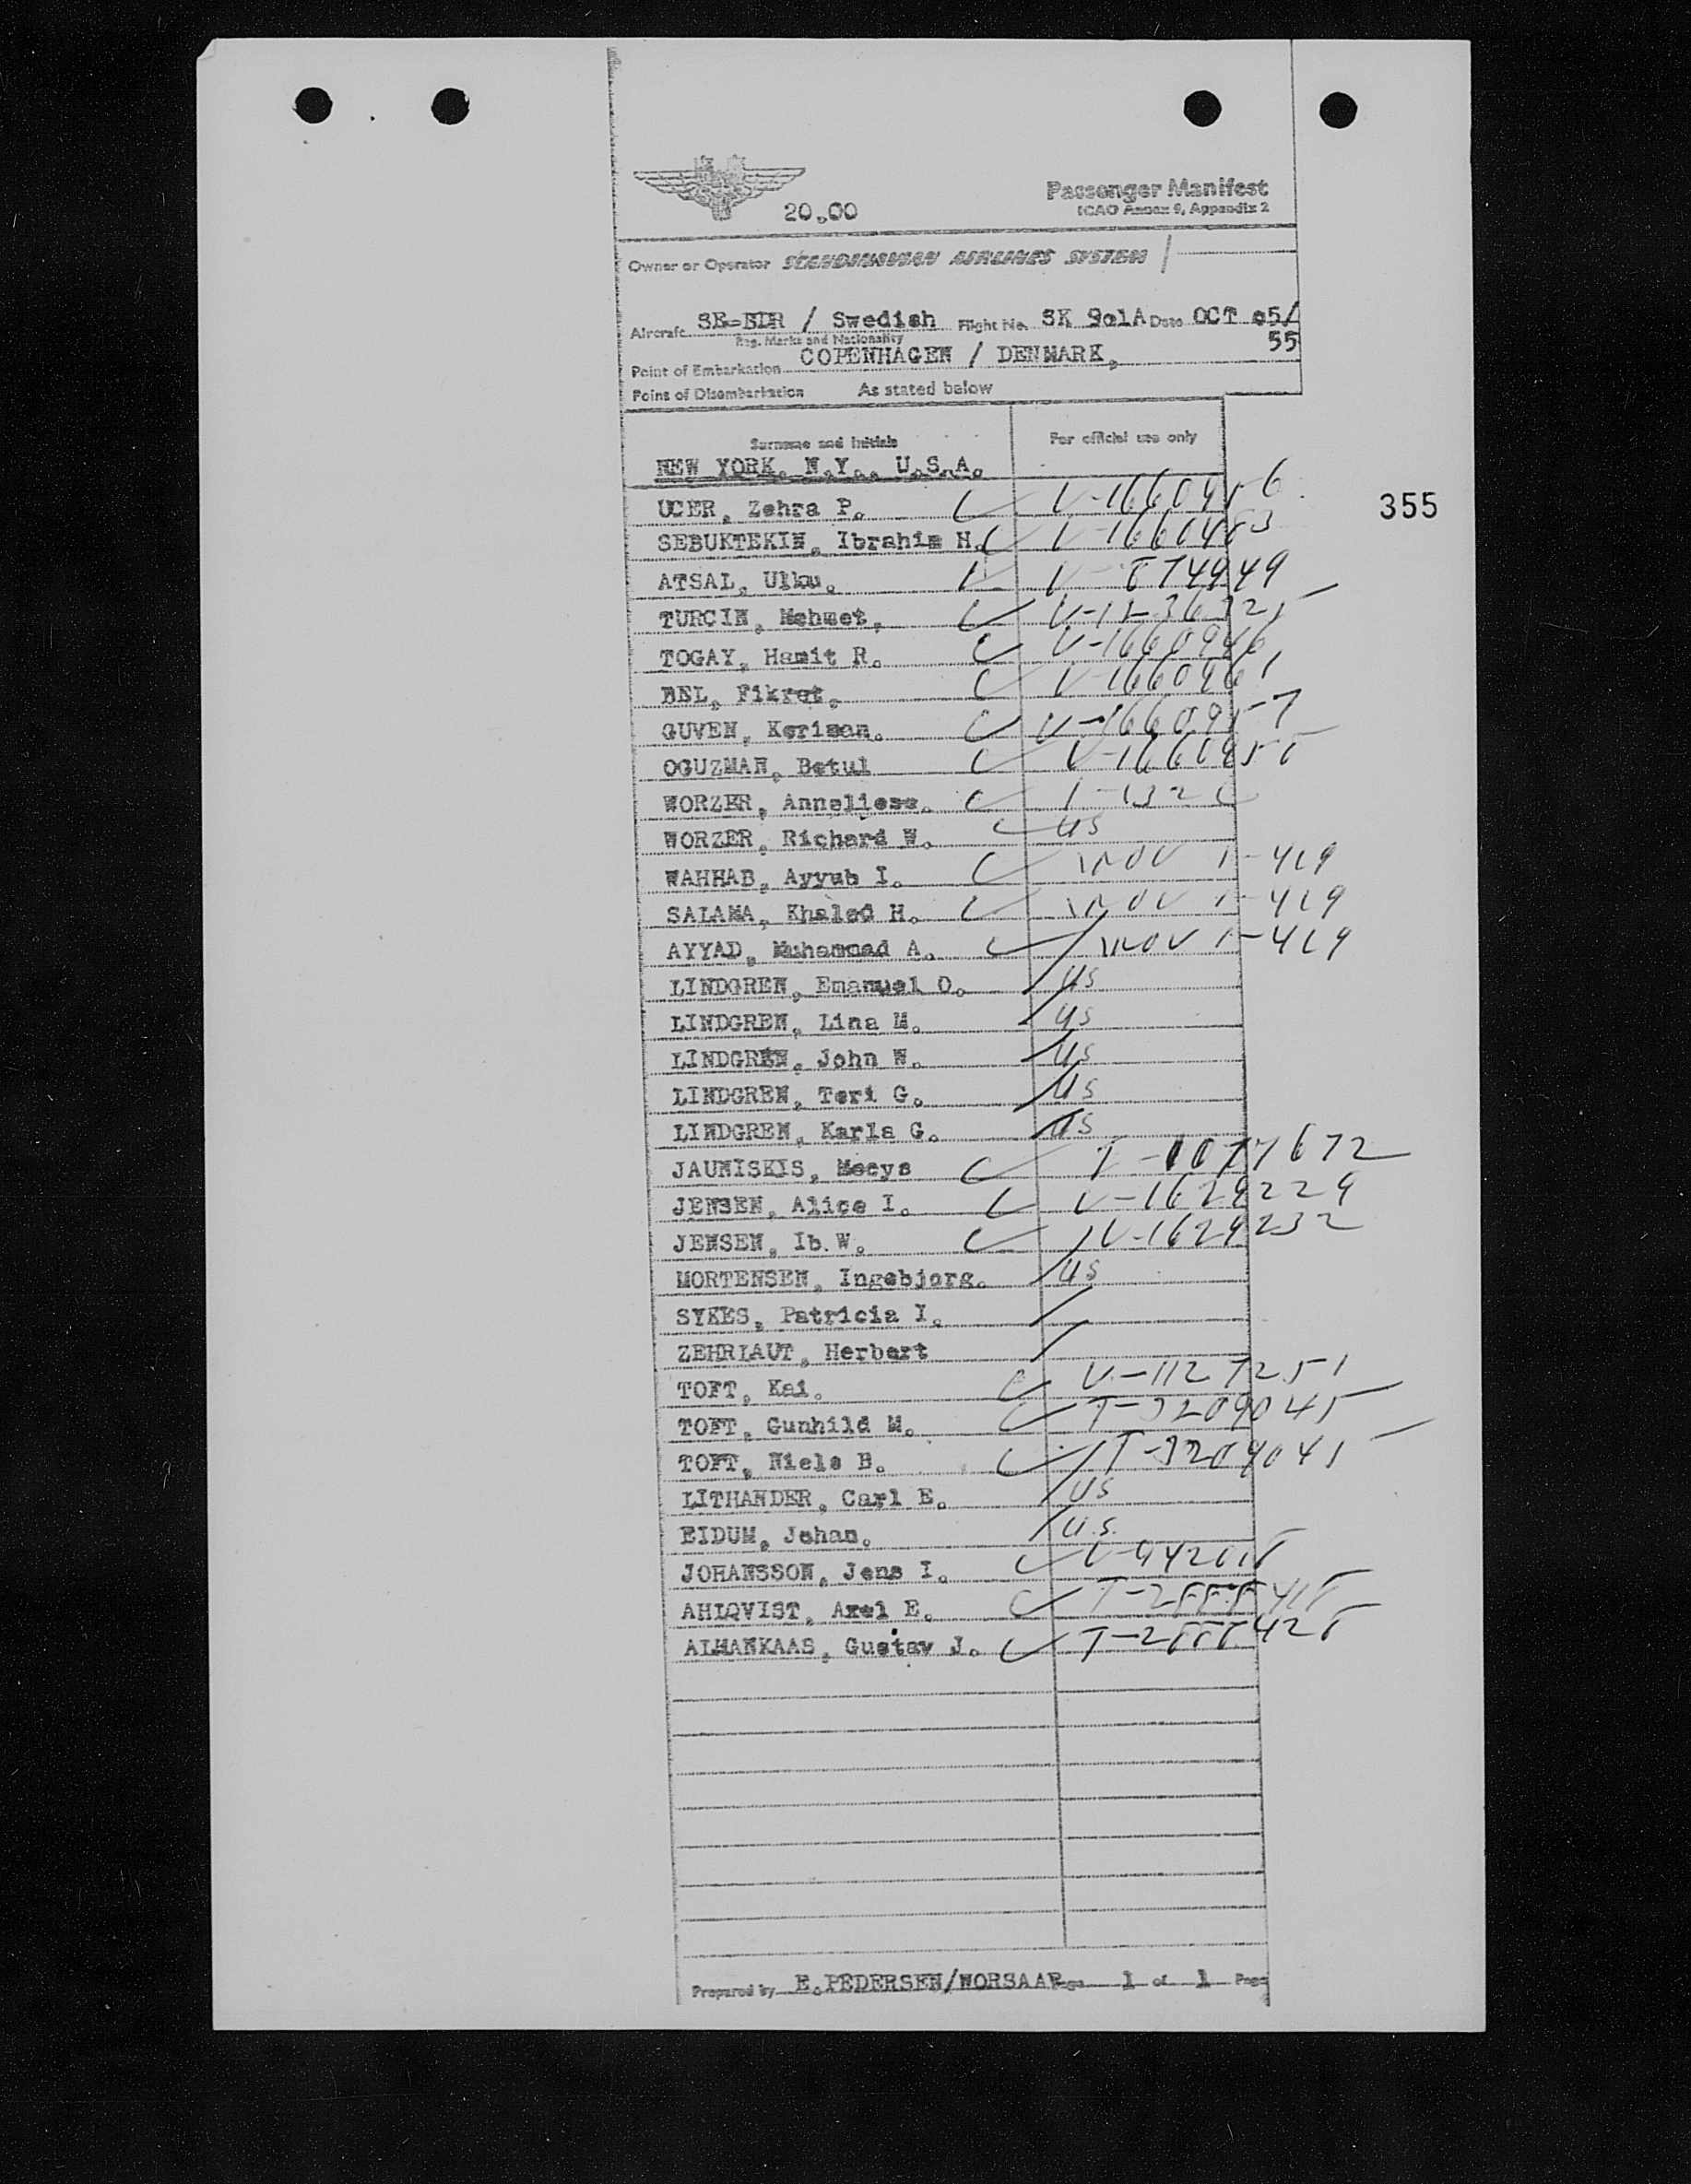 20.00
Passenger Manifest
ICAO Annex 9, Appendix 2
Owner or Operator SCANDINAVIAN AIRLINES SYSTEM
Aircraft SE-BDR / Swedish Flight No. SK 901A Date OCT 05/
Reg. Marks and Nationality 55
Point of Embarkation COPENHAGEN / DENMARK,
Point of Disembarkation As stated below
Surname and Initials For official use only
NEW YORK, N.Y., U.S.A.
UCER, Zehra P. V-1660956
355
SEBUKTEKIN, Ibrahim H. V-1660483
ATSAL, Ulku. V-874949
TURCIN, Mehmet,
TOGAY, Hamit R. V-1660946
BEL, Fikret. V-1660961
GUVEN, Keriman. V-1660957
OGUZMAN, Betul V-1660955
WORZER, Anneliese.
WORZER, Richard W. US
WAHHAB, Ayyub I. 419
SALAMA, Khaled H. 419
AYYAD, Muhammad A. 419
LINDGREN, Emanuel O. US
LINDGREN, Lina M. US
LINDGREN, John W. US
LINDGREN, Teri G. US
LINDGREN, Karla G. US
JAUNISKIS, Mecys T-1077672
JENSEN, Alice I. V-1629229
JENSEN, Ib. W. V-1629232
MORTENSEN, Ingebjorg. US
SYKES, Patricia I.
ZEHRLAUT, Herbert
TOFT, Kai. V-1127251
TOFT, Gunhild M. T-3209045
TOFT, Niels B. T-3209045
LITHANDER, Carl E. US
EIDUM, Johan. U.S.
JOHANSSON, Jens I.
AHLQVIST, Axel E.
ALMANKAAS, Gustav J.
Prepared by E.PEDERSEN/WORSAAE Page 1 of 1 Page